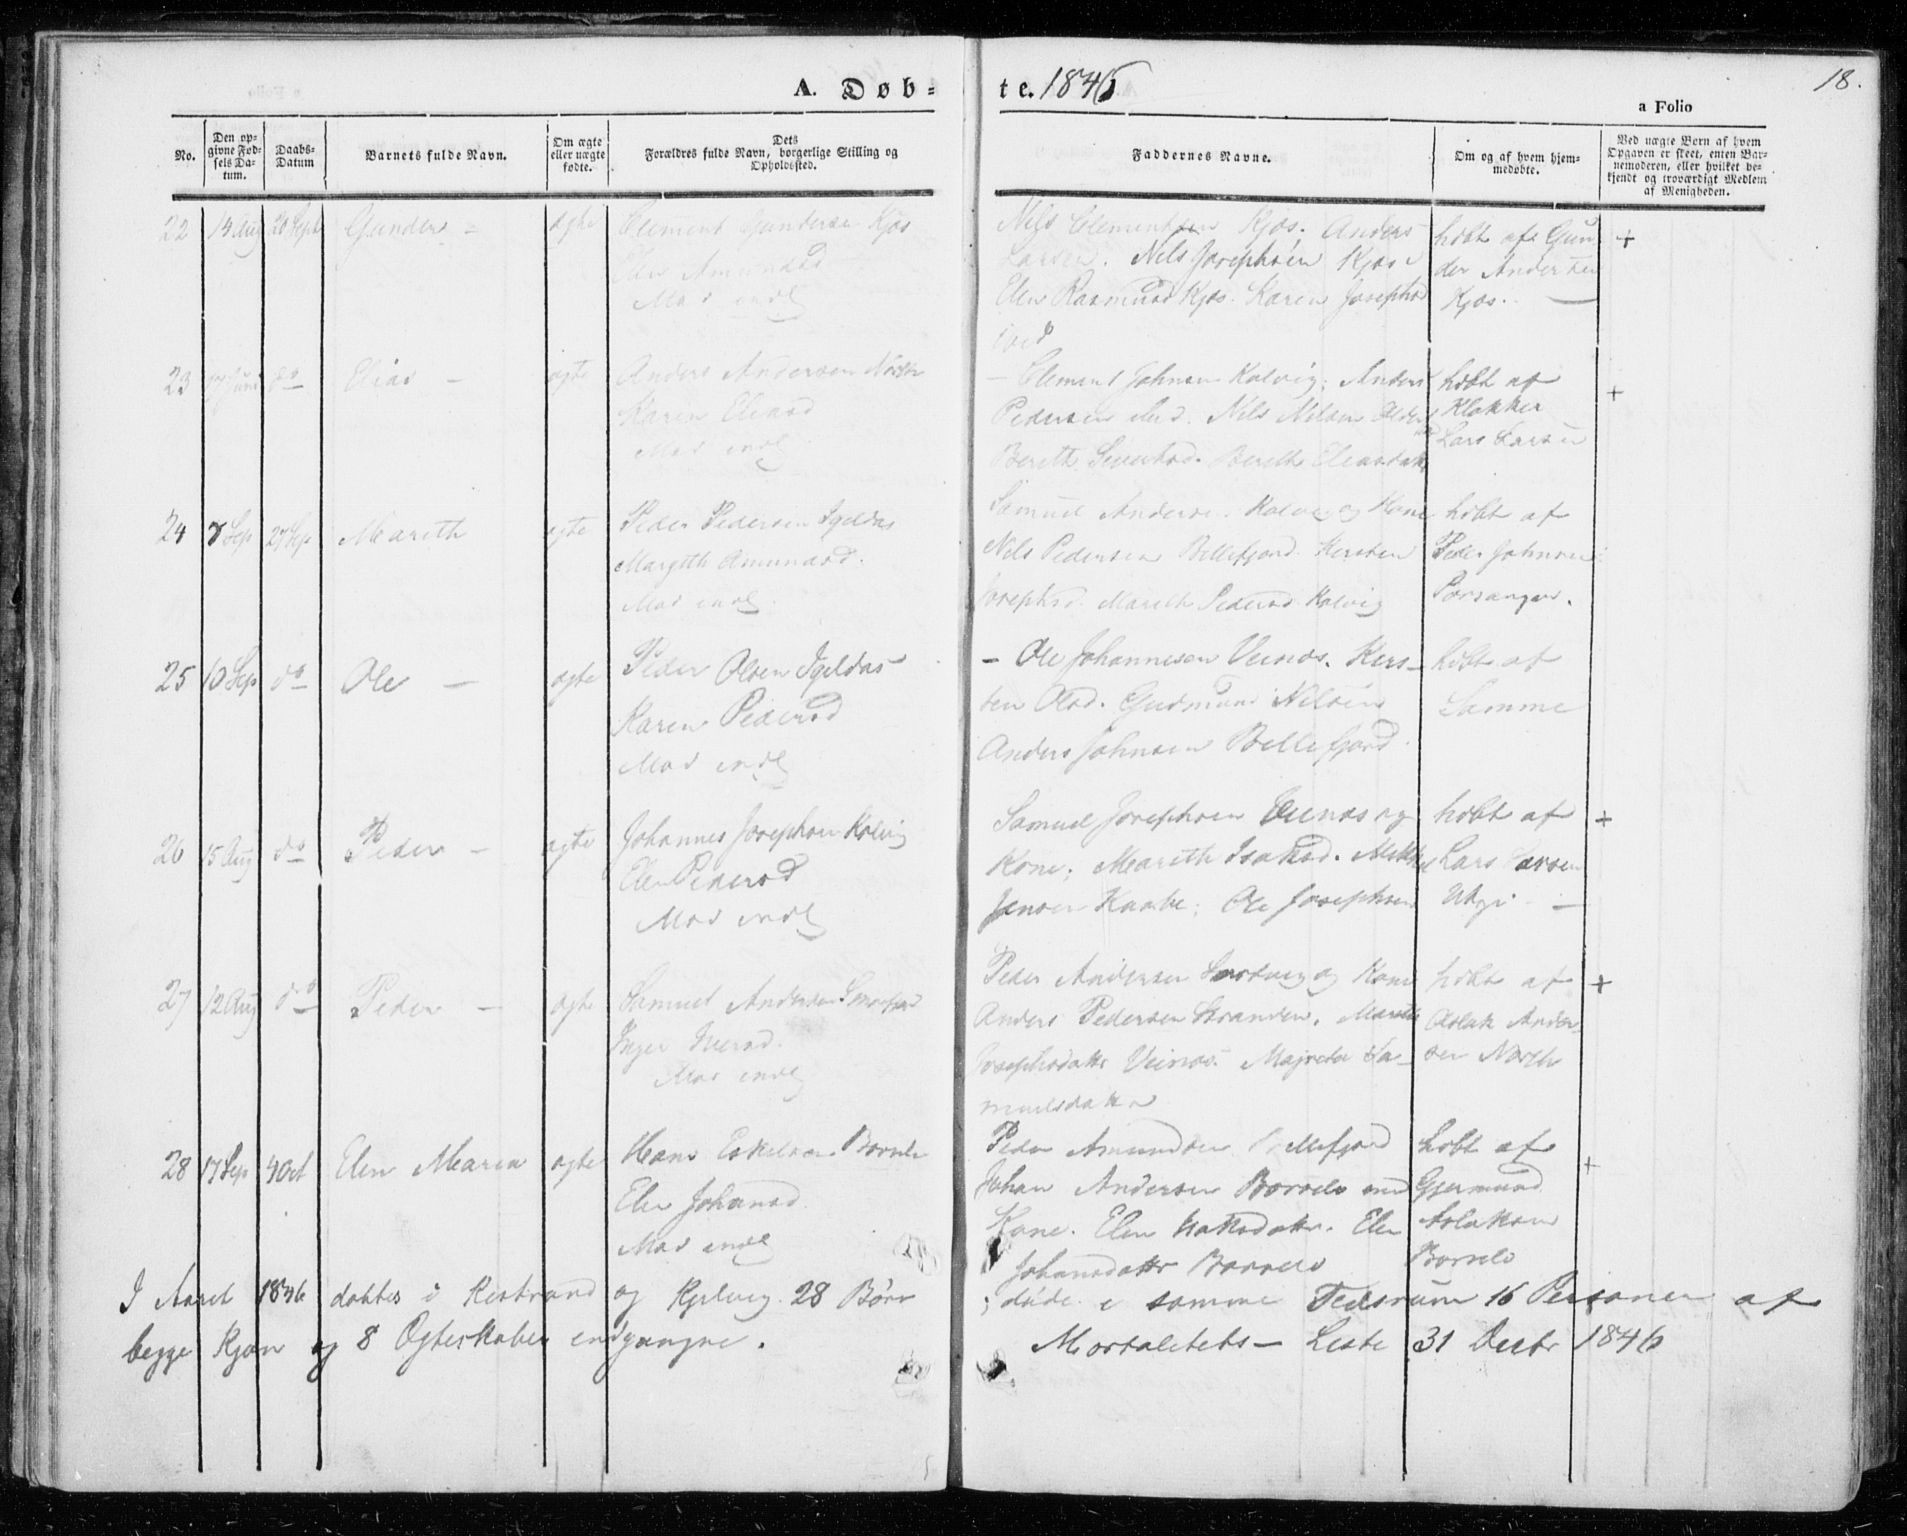 A. Døb-
te. 1846
18.
a Folio
No.
Den op-
givne Fød-
sels Da-
tum.
Daabs-
Datum
Barnets fulde Navn.
Om ægte
eller uægte
fødte.
Dets
Forældres fulde Navn, borgerlige Stilling og
Opholdssted.
Faddernes Navne.
Om og af hvem hjem-
medøbte.
Ved uægte Børn af hvem
Opgaven er skeet, enten Bar-
nemoderen, eller hvilket be-
kjendt og troværdigt Medlem
af Menigheden.
22 14 Aug 20 Sept Gunder - ægte
Clement Gundersen Kjæs
Elen Amundsd
Mor indl
Nils Clementsen Kjæs. Anders
Larsen. Nils Josephsen Kjæs
Elen Rasmusd Kjæs. Karen Josephsd
ibid
hdbt af Gun-
der Andersen
Kjæs. +
23 17 Juni do Elias - ægte
Anders Andersen
Karen Eliasd
Mor indl
- Clement Johnsen Kolvig; Anders
Pedersen ibid. Nils Nilsen
Berith Siversd. Berith Eliasdatt
hdbt af
Klokker
Lars Larsen +
24 7 Sep 27 Sep Marith ægte
Peder Pedersen Igeldas
Margith Amundsd.
Mor indl
Samuel Andersen Kolvig og Kone
Nils Pedersen Billefjord. Kirsten
Josephsd. Marith Pedersd Kolvig
hdbt af
Peder Johnsen
Porsanger.
25 10 Sep do Ole - ægte
Peder Olsen Igeldas
Karen Pedersd
Mor indl
- Ole Johannesen Veinæs. Kirs-
ten Olsd. Gudmund Nilsen
Anders Johnsen Billefjord.
hdbt af
Samme
26 15 Aug do Peder - ægte
Johannes Josephsen Kolvig
Elen Pedersd
Mor indl
Samuel Josephsen Veinæs og
Kone; Marith Isaksd. Mikkel
Jensen Kaabe; Ole Josephsen
hdbt af
Lars Larsen
+
27 12 Aug do Peder - ægte
Samuel Andersen Smorfjord
Inger Iversd.
Mor indl
Peder Andersen og Kone
Anders Pedersen Stranden. Marith
Josephsdatter Veinæs. Majreta Sa-
muelsdatter
hdbt af
Aslak Ander-
sen +
28 17 Sep 4 Oct Elen Maria ægte
Hans Eskelsen Børsele
Elen Johansd.
Mor indl
Peder Amundsen Billefjord
Johan Andersen Børsele med
Kone. Elen. Elen
Johansdatter Børsele
hdbt af
Gjermund
Aslaksen
Børsele +
I Aaret 1846 døbtes i Kistrand og Kjelvig 28 Børn
; døde i samme Tidsrum 16 Personer af
begge Kjøn og 8 Ægteskaber indgangne.
Mortalitets- Liste 31 Decbr 1846